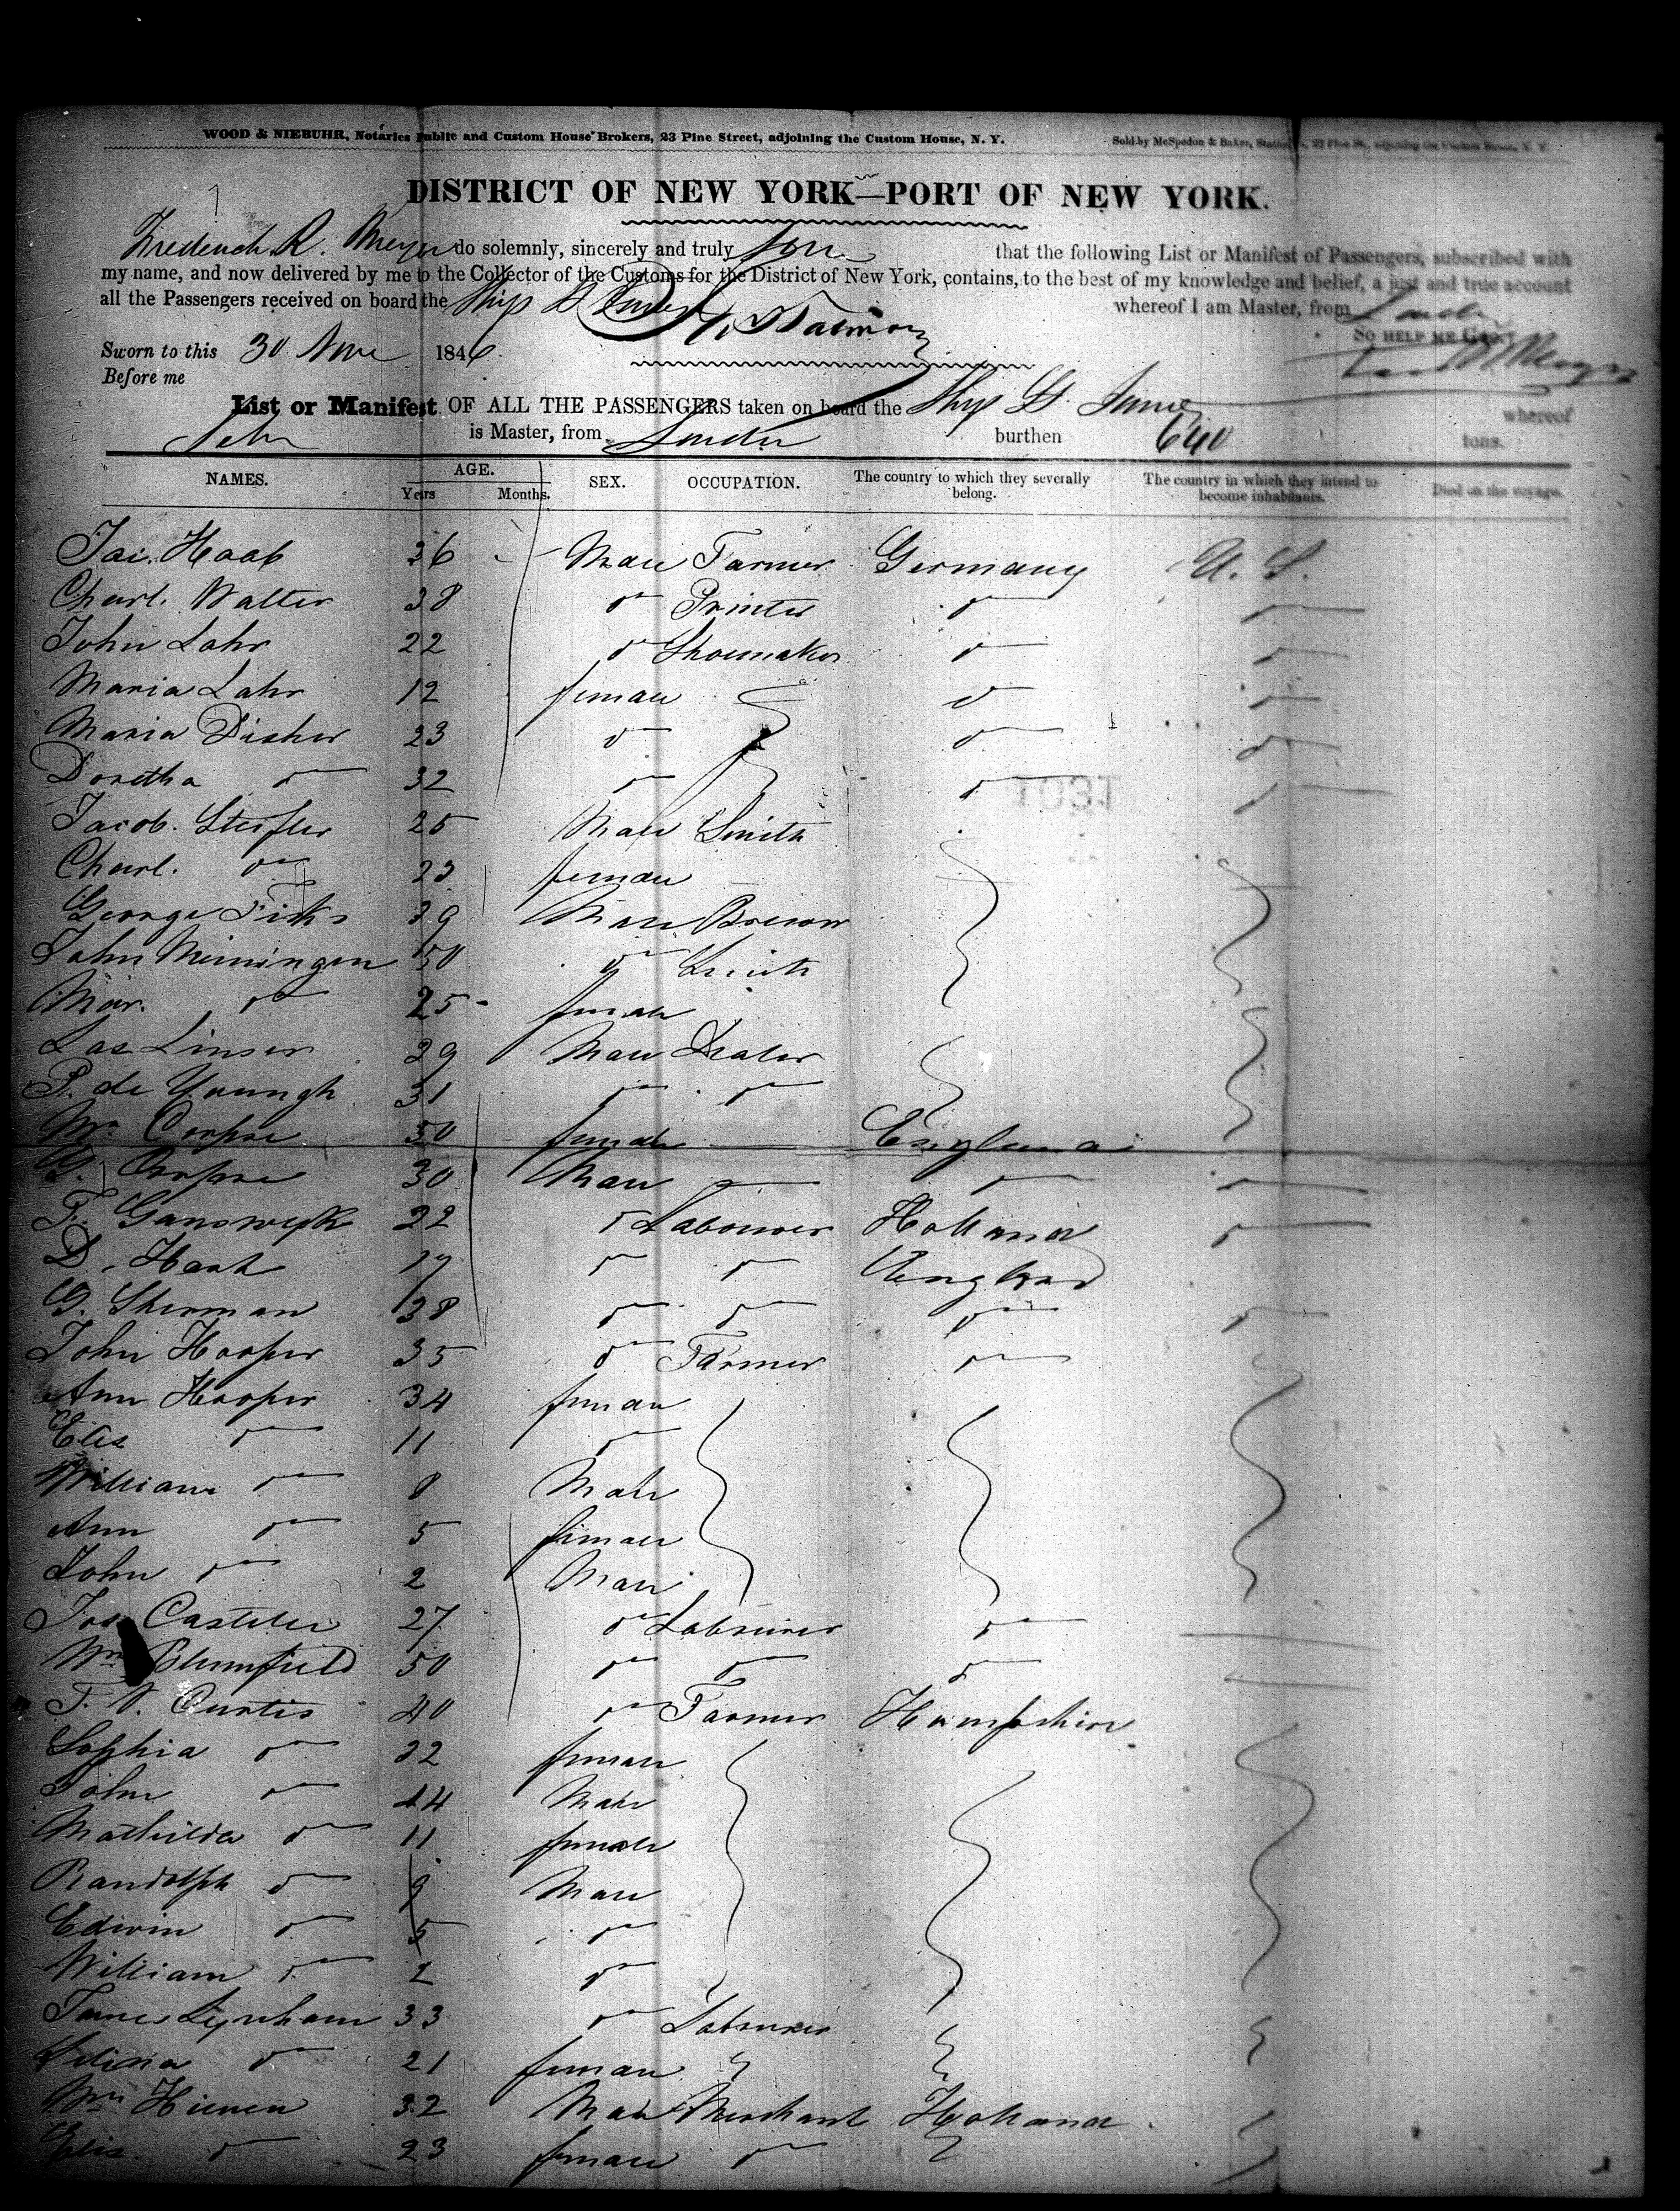 WOOD & NIEBUHR, Notaries Public and Custom House Brokers, 23 Pine Street, adjoining the Custom House, N. Y. Sold by McSpedon & Baker, Stationers, 23 Pine St., adjoining the Custom House, N. Y.
DISTRICT OF NEW YORK—PORT OF NEW YORK.
Frederick R. Meyer do solemnly, sincerely and truly that the following List or Manifest of Passengers, subscribed with
my name, and now delivered by me to the Collector of the Customs for the District of New York, contains, to the best of my knowledge and belief, a just and true account
all the Passengers received on board the Ship St James whereof I am Master, from London
So HELP ME GOD.
Sworn to this 30 Nov 1846.
Before me
List or Manifest OF ALL THE PASSENGERS taken on board the Ship St. James whereof
is Master, from London burthen 640 tons.
NAMES. AGE. SEX. OCCUPATION. The country to which they severally belong. The country in which they intend to become inhabitants. Died on the voyage.
Years Months.
Jac. Haab 36 Male Farmer Germany U. S.
Charl. Walter 38 do Printer do
John Lahr 22 do Shoemaker do
Maria Lahr 12 female do
Maria Disher 23 do do
Doretha do 32 do do
Jacob. Steifler 25 Male Smith
Charl. do 23 female
George 39 Male Brewer
John Meiningen 50 do Smith
Mar. do 25 female
Linser 29 Male Dealer
P. de Youngh 31 do do
Corpse 50 female England
Corpse 30 Male do
T. Ganswyk 22 do Labourer Holland
D. Hart 17 do do England
G. Sherman 38 do do do
John Hooper 35 do Farmer do
Ann Hooper 34 female
Elis do 11 do
William do 8 Male
Ann do 5 female
John do 2 Male
Jos Casteler 27 do Labourer do
Wm Blumfield 50 do do do
Curtis 40 do Farmer Hampshire
Sophia do 32 female
John do 14 Male
Mathilda do 11 female
Randolph do 9 Male
Edwin do 5 do
William do 2 do
James Lynham 33 do Labourer
Selina do 21 female
Wm Hienen 32 Male Merchant Holland
Elis. do 23 female do